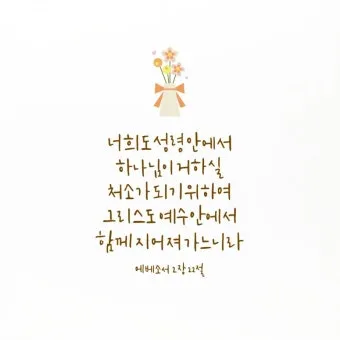 너희도 성령 안에서
하나님이 거하실
처소가 되기 위하여
그리스도 예수 안에서
함께 지어져 가느니라
에베소서 2장 22절